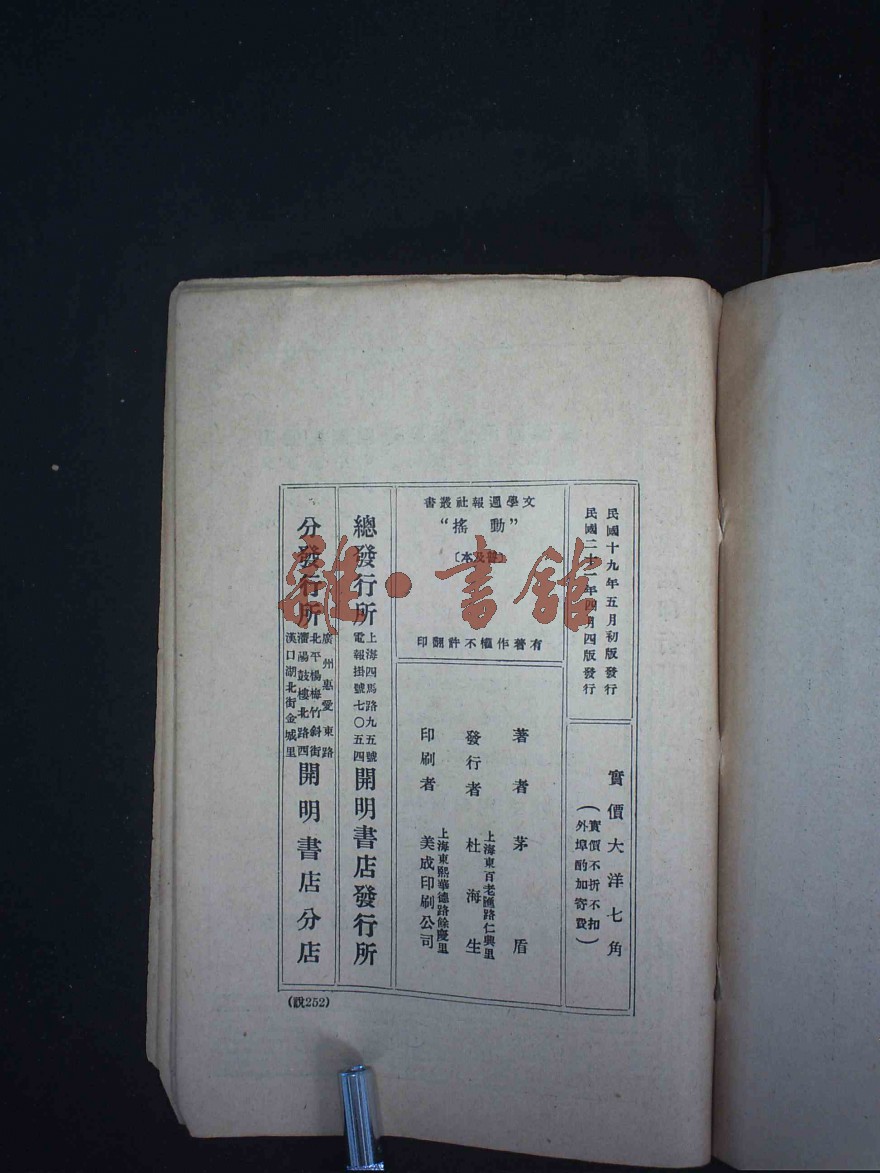 民國十九年五月初版發行
民國二十一年四月四版發行
實價大洋七角
(實價不折不扣
外埠酌加寄費)
文學週報社叢書
“動搖”
〔普及本〕
有著作權不許翻印
著者 茅盾
發行者 杜海生
上海東百老匯路仁興里
印刷者 美成印刷公司
上海東熙華德路餘慶里
總發行所
上海四馬路九五號
電報掛號七〇五四
開明書店發行所
分發行所
廣州惠愛東路
北平楊梅竹斜街
瀋陽鼓樓北路西
漢口湖北街金城里
開明書店分店
(說252)
雜·書館